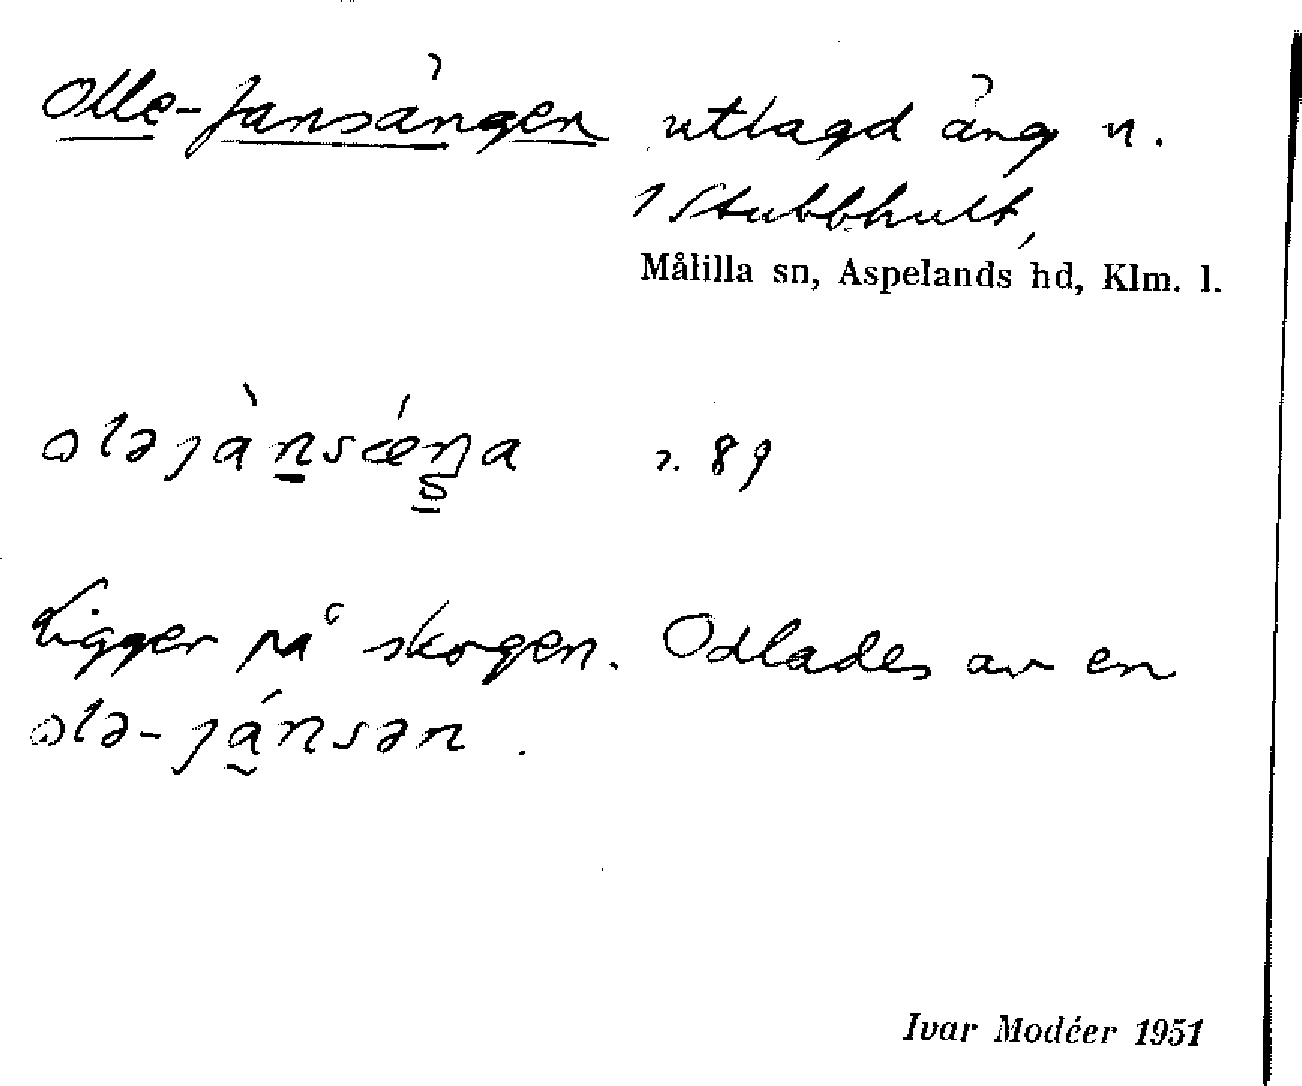 Olle-Jansängen utlagd äng n.
1 Stubbhult,
Målilla sn, Aspelands hd, Klm. l.
oləjànsǽŋa s. 89
Ligger på skogen. Odlades av en
olə-jánsən.
Ivar Modéer 1951